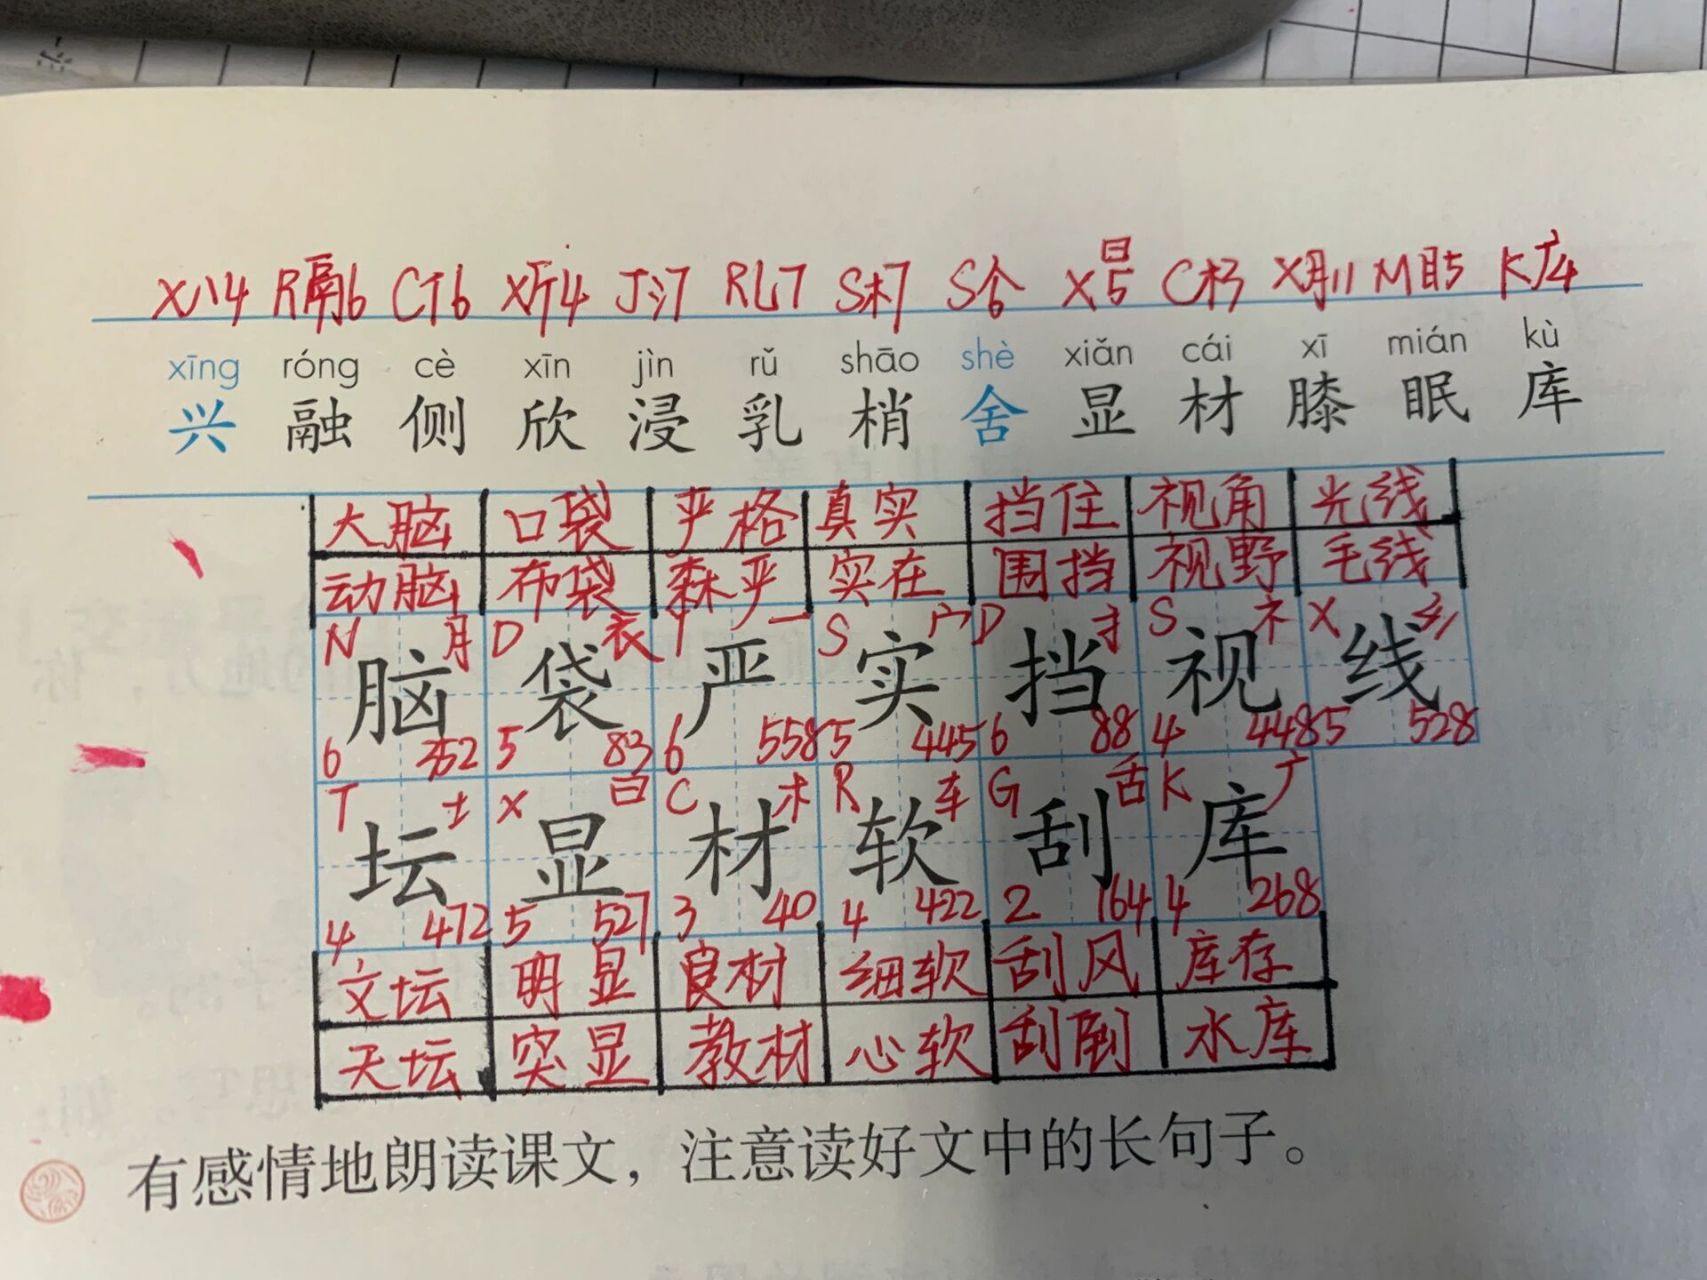 X八4 R鬲6 C亻6 X斤4 J氵7 R乚7 S木7 S人6 X日5 C木3 X月11 M目5 K广4
xīng róng cè xīn jìn rǔ shāo shè xiǎn cái xī mián kù
兴 融 侧 欣 浸 乳 梢 舍 显 材 膝 眠 库
大脑 口袋 严格 真实 挡住 视角 光线
动脑 布袋 森严 实在 围挡 视野 毛线
N 月 D 衣 Y 一 S 宀 D 扌 S 礻 X 纟
脑 袋 严 实 挡 视 线
6 352 5 83 6 558 5 445 6 88 4 448 5 528
T 土 X 日 C 木 R 车 G 舌 K 广
坛 显 材 软 刮 库
4 472 5 527 3 40 4 422 2 164 4 268
文坛 明显 良材 细软 刮风 库存
天坛 突显 教材 心软 刮倒 水库
有感情地朗读课文，注意读好文中的长句子。